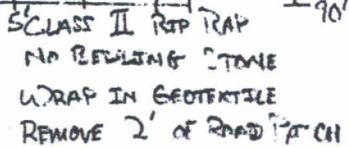 90'
5' CLASS II RIP RAP
NO BEDDING STONE
WRAP IN GEOTEXTILE
REMOVE 2' OF ROAD PATCH